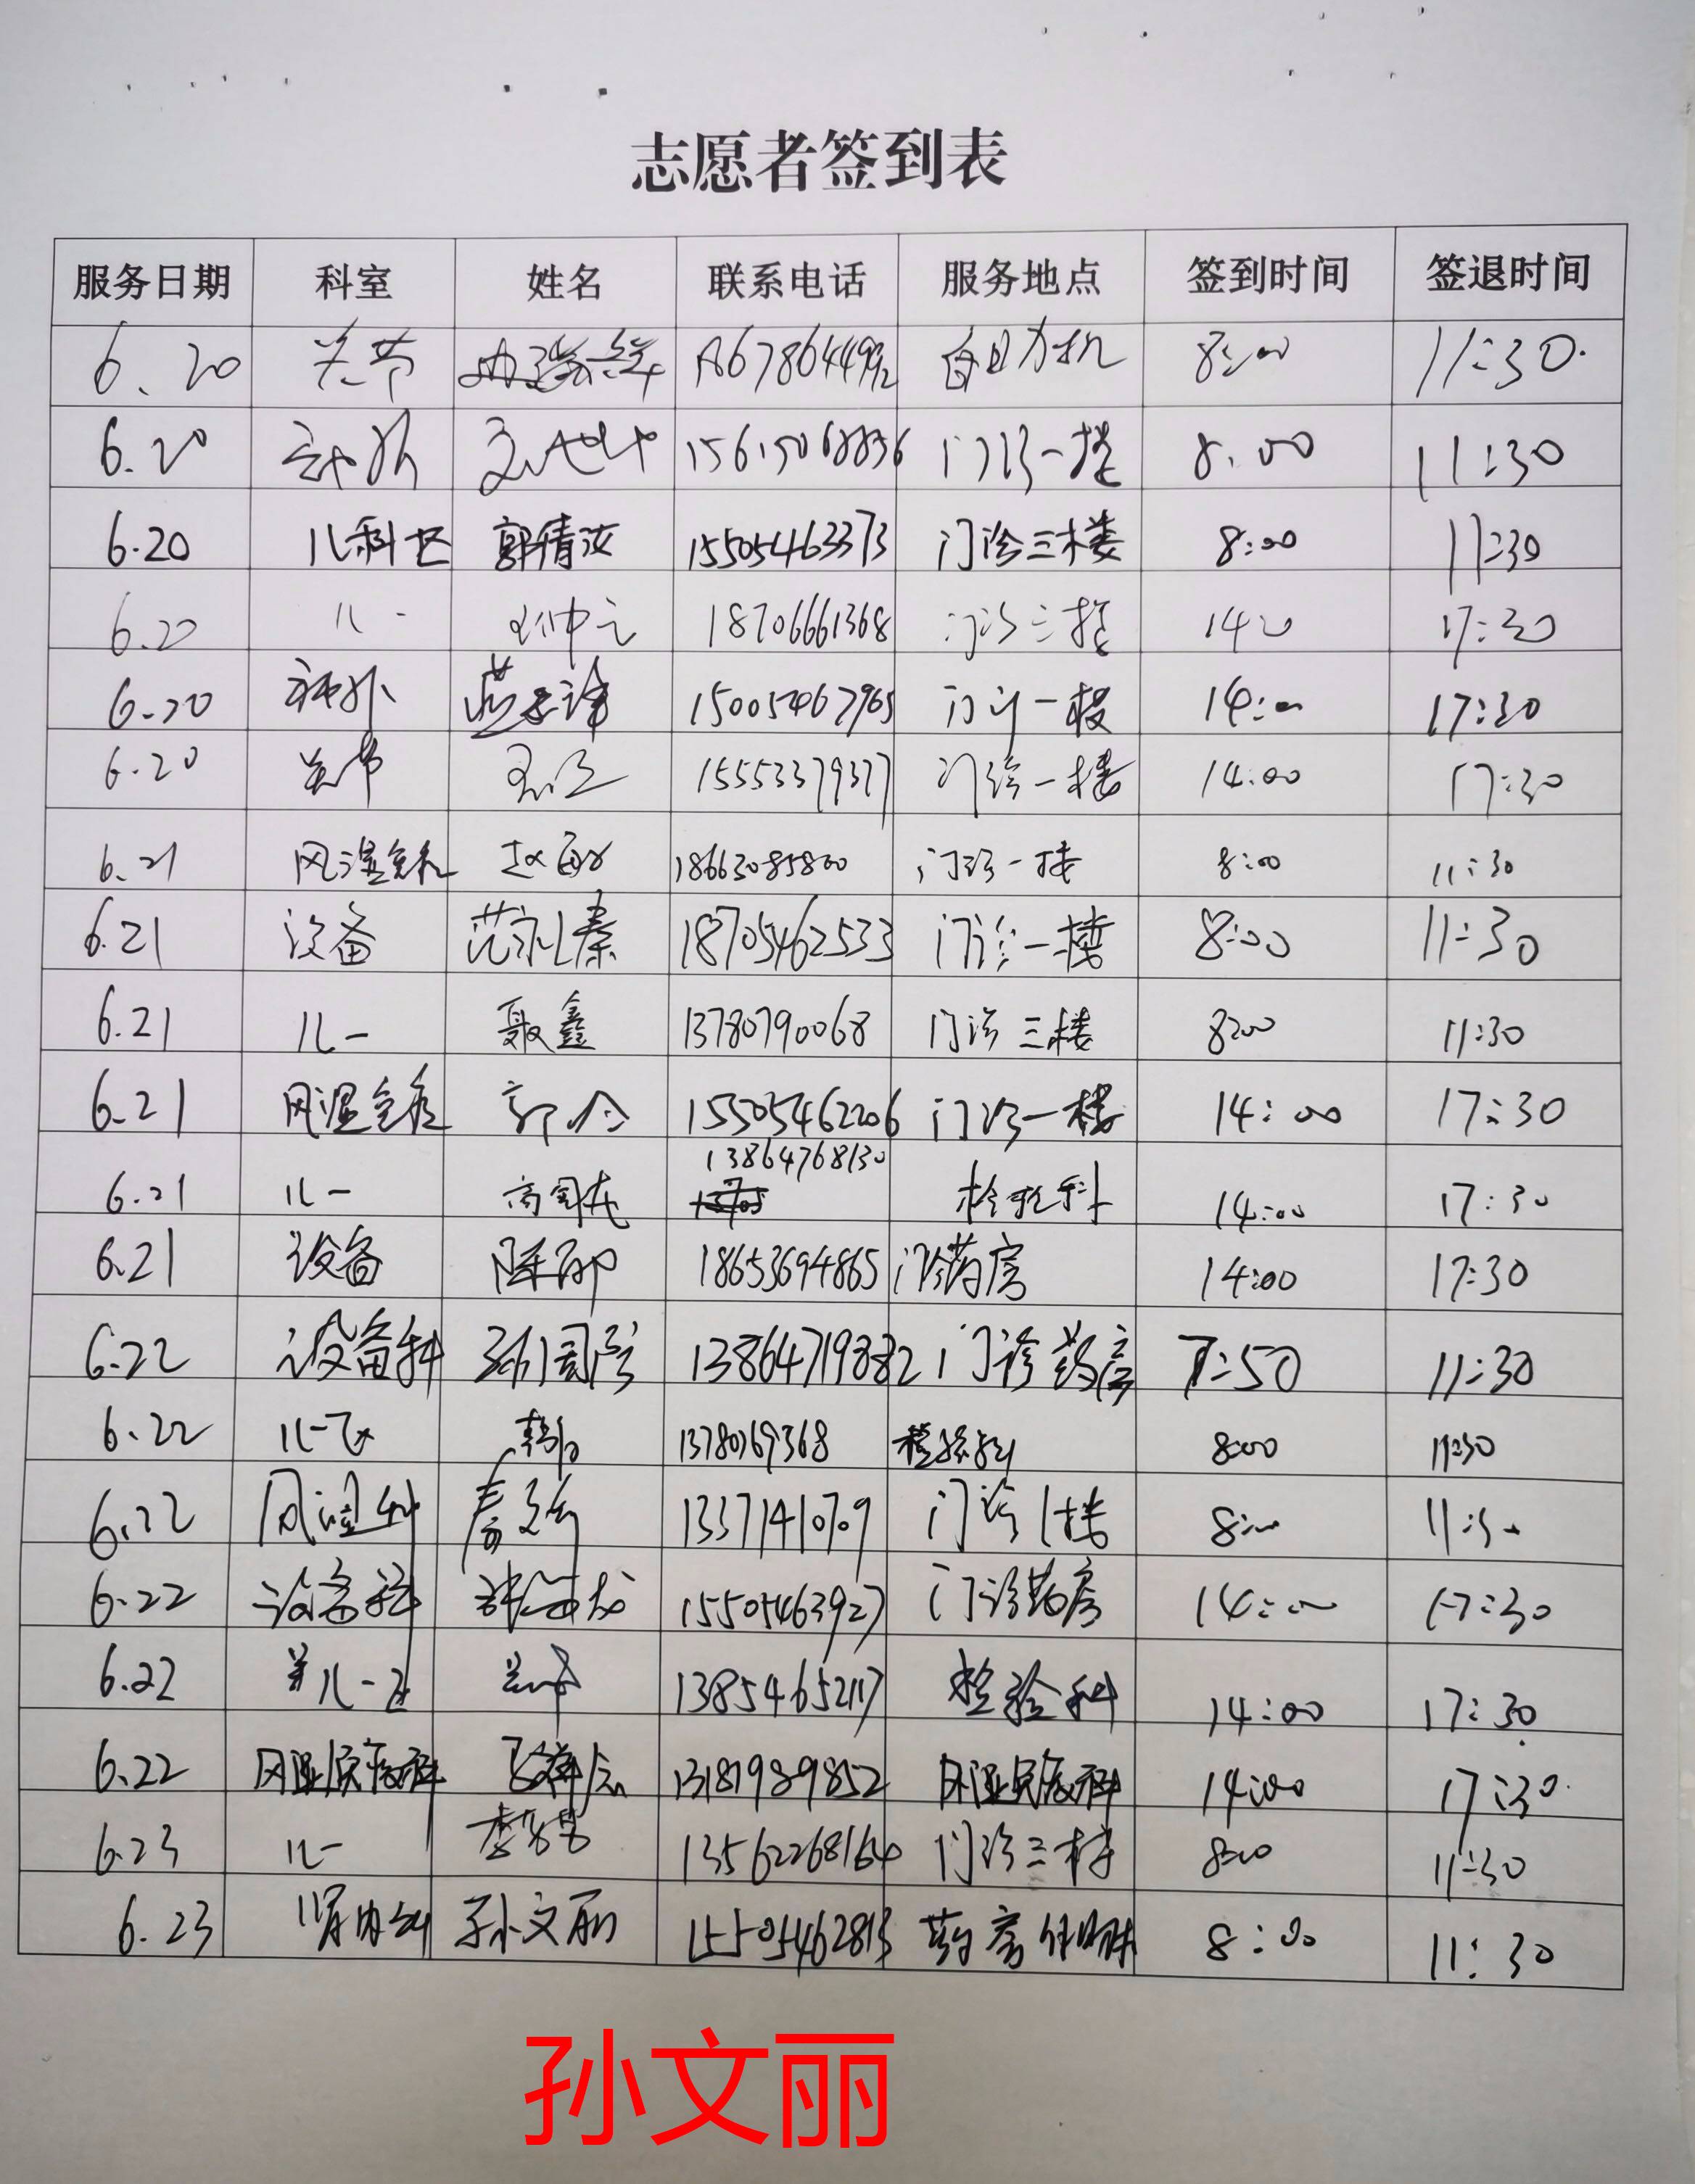 志愿者签到表
服务日期 科室 姓名 联系电话 服务地点 签到时间 签退时间
6.20 关节 自助机 8:00 11:30
6.20 神外 15615068836 门诊一楼 8:00 11:30
6.20 儿科 郭倩汝 15505463373 门诊三楼 8:00 11:30
6.20 儿一 18706661368 门诊三楼 14:0 17:30
6.20 神外 15005467965 门诊一楼 14:00 17:30
6.20 关节 15553379377 门诊一楼 14:00 17:30
6.21 风湿免疫 赵敏 18663085800 门诊一楼 8:00 11:30
6.21 设备 范永秦 18705462533 门诊一楼 8:00 11:30
6.21 儿一 聂鑫 13780790068 门诊三楼 8:00 11:30
6.21 风湿免疫 15505462206 门诊一楼 14:00 17:30
6.21 儿一 13864768130 检验科 14:00 17:30
6.21 设备 18653694865 门诊药房 14:00 17:30
6.22 设备科 13864719882 门诊药房 7:50 11:30
6.22 儿一 13780769368 检验科 8:00 11:30
6.22 风湿科 13371410709 门诊1楼 8:00 11:30
6.22 设备科 15505463927 门诊药房 14:00 17:30
6.22 儿一 13854652117 检验科 14:00 17:30
6.22 风湿免疫科 13181989852 风湿免疫科 14:00 17:30
6.23 儿一 13562268164 门诊三楼 8:00 11:30
6.23 肾内科 孙文丽 15505462813 药房 8:00 11:30
孙文丽